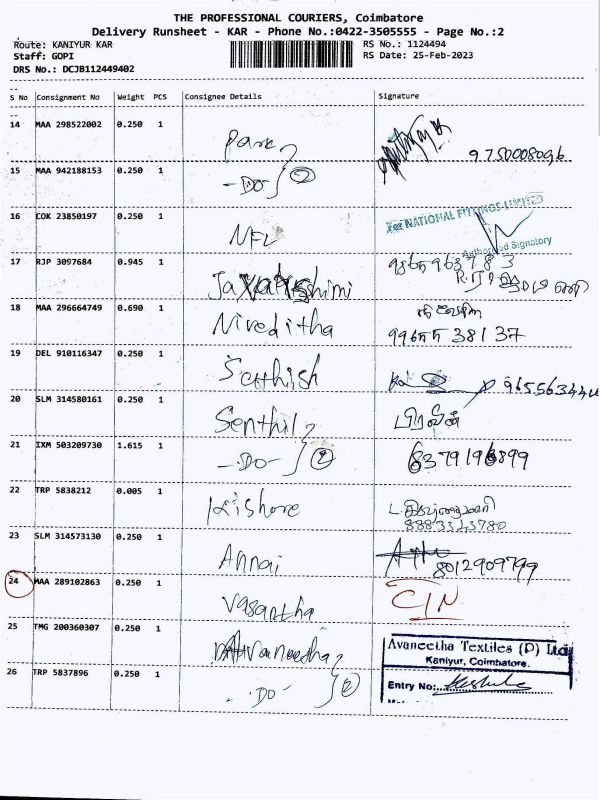 THE PROFESSIONAL COURIERS, Coimbatore
Delivery Runsheet - KAR - Phone No.:0422-3505555 - Page No.:2
Route: KANIYUR KAR
RS No.: 1124494
Staff: GOPI
RS Date: 25-Feb-2023
DRS No.: DCJB112449402
S No Consignment No Weight PCS Consignee Details Signature
14 MAA 298522002 0.250 1
9750008096
15 MAA 942188153 0.250 1 -DO- 2
16 COK 23850197 0.250 1 NFL
For NATIONAL FITTINGS LIMITED
Authorised Signatory
17 RJP 3097684 0.945 1
18 MAA 296664749 0.690 1 Niveditha
99655 38137
19 DEL 910116347 0.250 1
20 SLM 314580161 0.250 1 Senthil பிரவீன்
21 IXM 503209730 1.615 1 -DO- 2
22 TRP 5838212 0.005 1 Kishore
8883343780
23 SLM 314573130 0.250 1 Annai
8012909799
24 MAA 289102863 0.250 1 Vasantha
25 TMG 200360307 0.250 1
Avaneetha Textiles (P) Ltd
Kaniyur, Coimbatore.
26 TRP 5837896 0.250 1 -DO- 2
Entry No: